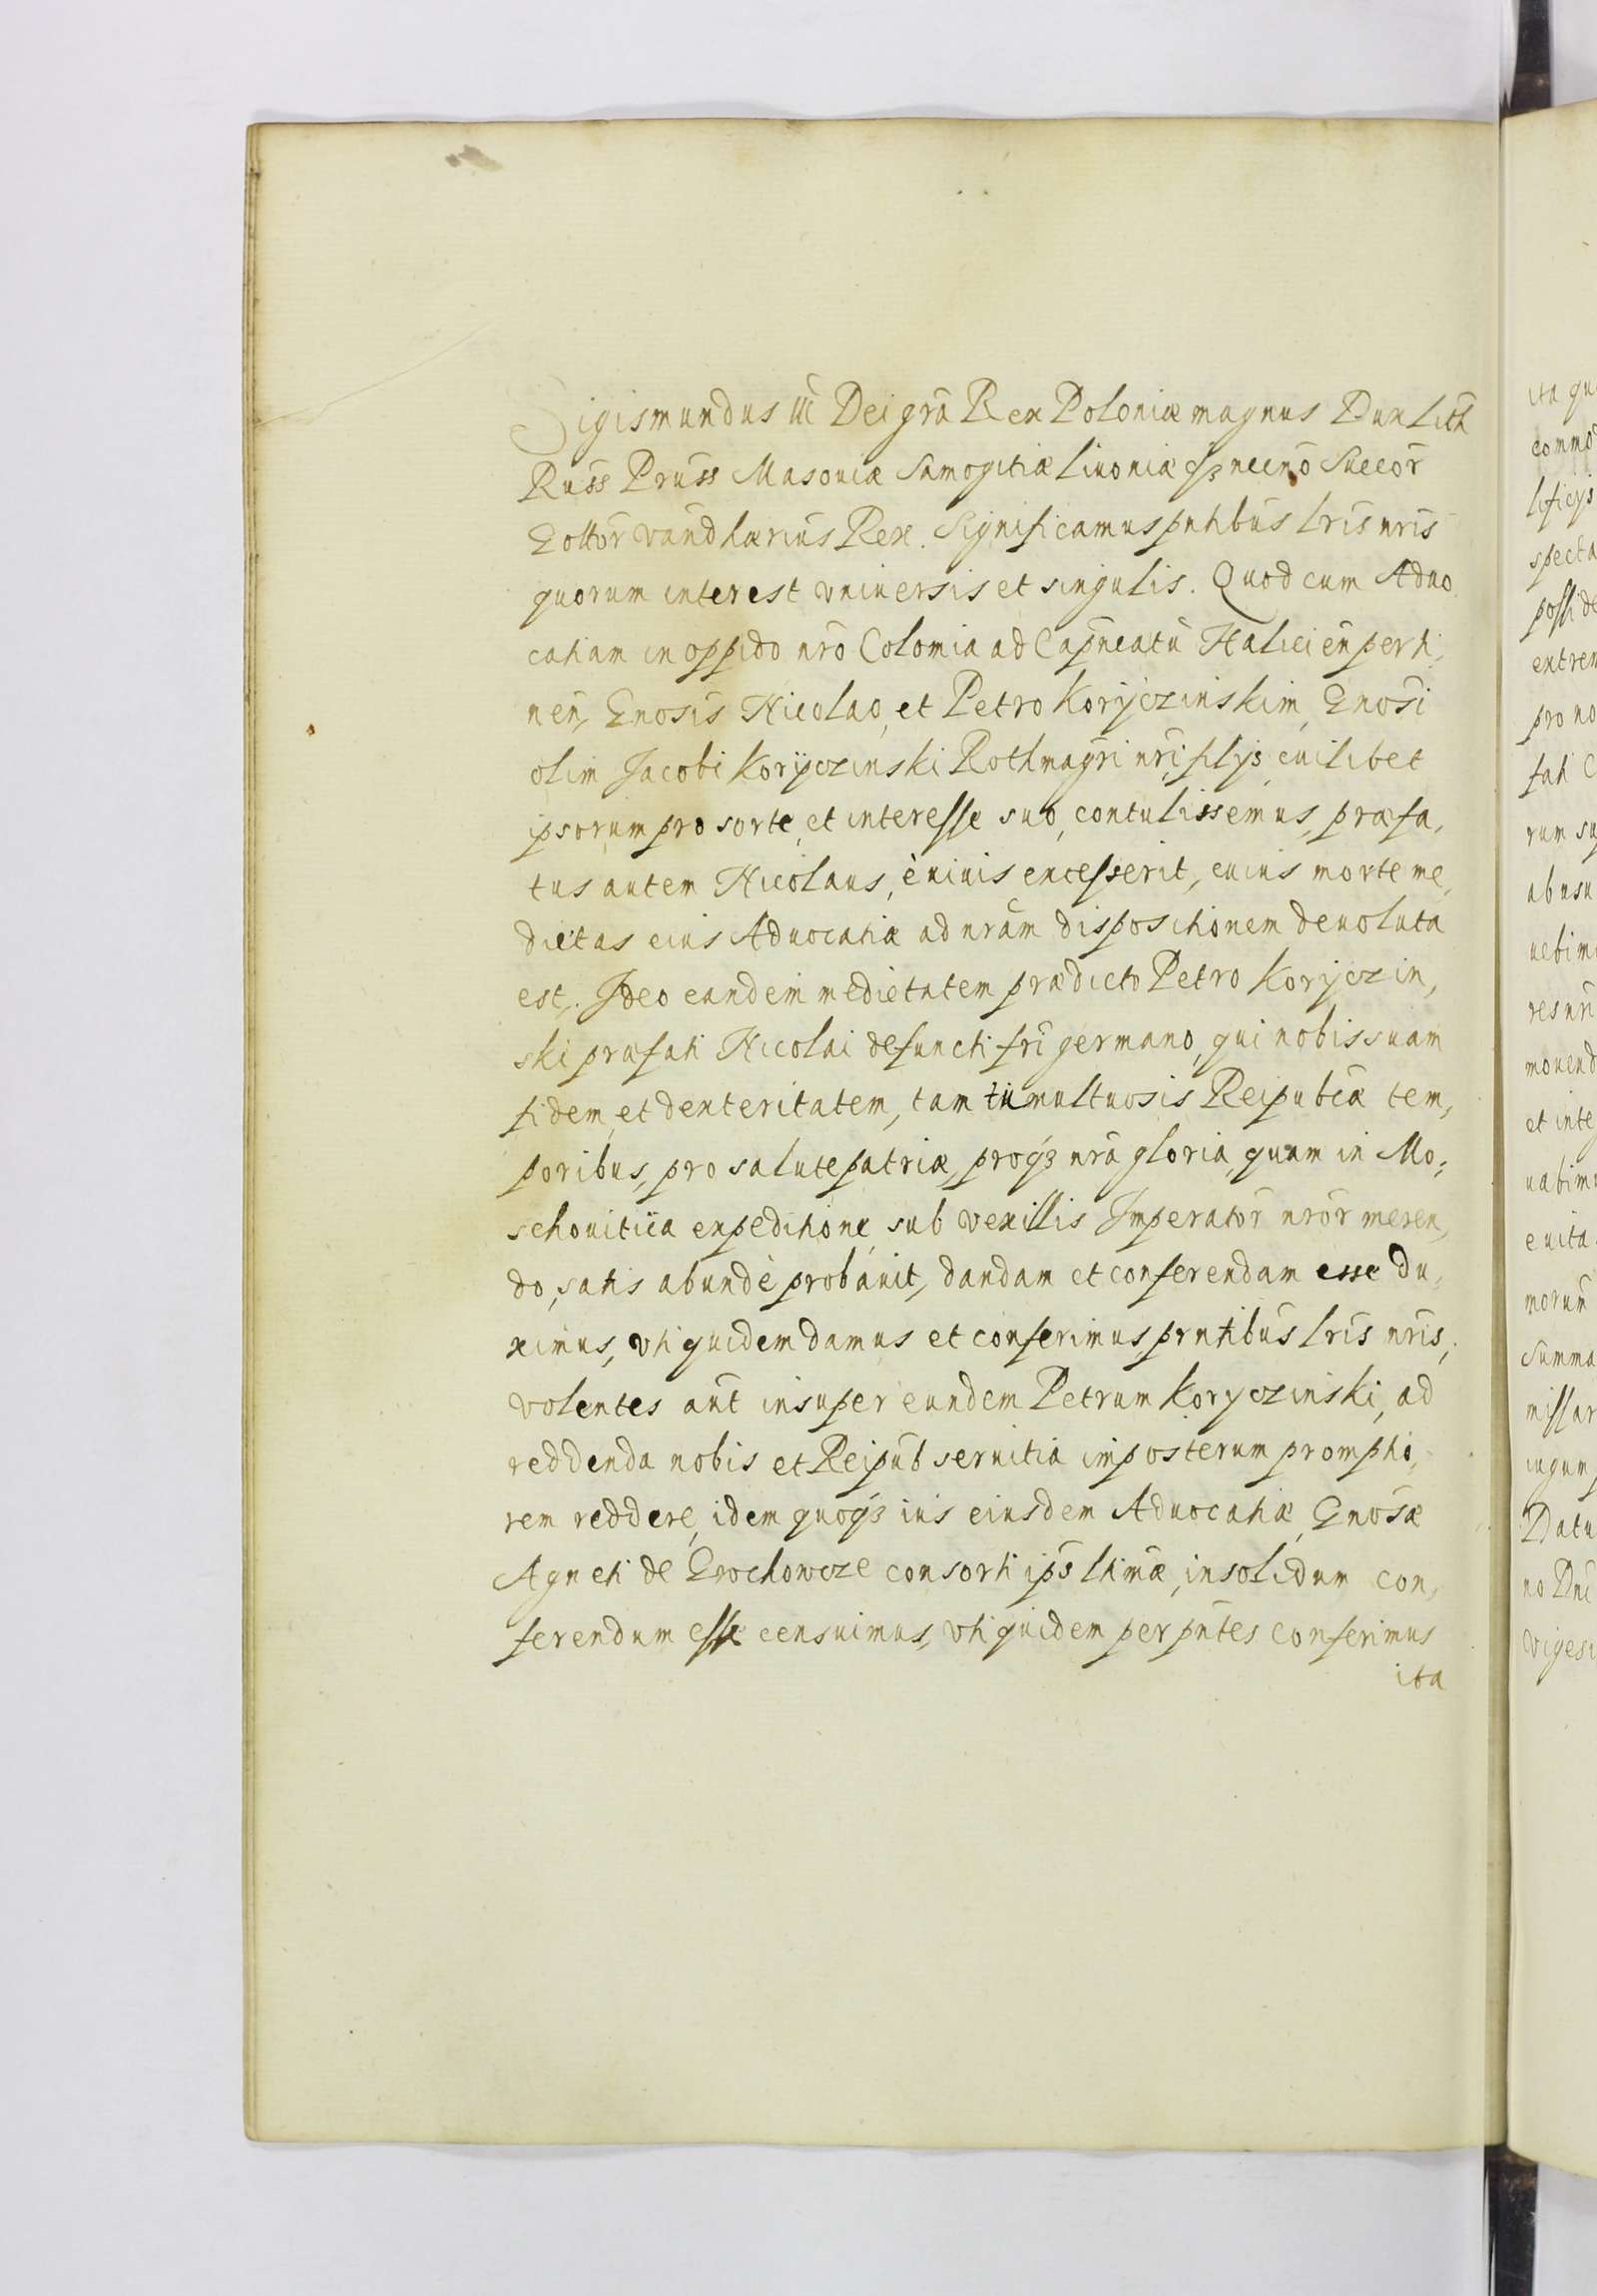 Sigismundus III Dei grã Rex Poloniæ magnus Dux Lith
Russ Pruss Masouiæ Samogitiæ Liuoniæ qȝ necnõ Suecor
Gottor vand hærius Rex. Significamus pntibus lris nris
quorum interest vniuersis et singulis. Quod cum Aduo,
catiam in oppido nrõ Colomia ad Capneatũ Halicien perti,
nen, Gnosis Nicolao, et Petro Koryczinskim, Gnosi
olim Jacobi Koryczinski Rothmagri nri, filys, cuilibet
ipsorum pro sorte, et interesse suo, contulissemus, præfa,
tus autem Nicolaus, è viuis excesserit, cuius morte me,
dietas eius Aduocatiæ ad nrãm dispositionem deuoluta
est. Ideo eandem medietatem prædicto Petro Koryczin,
ski præfati Nicolai defuncti fri germano, qui nobis suam
fidem, et dexteritatem, tam tumultuosis Reipubcæ tem,
poribus, pro salute patriæ, proqȝ nrã gloria, quam in Mo,
schouitica expeditione, sub vexillis Imperator nror meren,
do, satis abundè probauit, dandam et conferendam esse du,
ximus, vti quidem damus et conferimus prntibus lris nris,
volentes aut insuper eundem Petrum Koryczinski, ad
reddenda nobis et Reipub seruitia imposterum promptio,
rem reddere, idem quoqȝ ius eiusdem Aduocatiæ, Gnosæ
Agneti de Grochowcze consorti ips ltimæ, insolidum con,
ferendum esse censuimus, vti quidem per pntes conferimus
ita